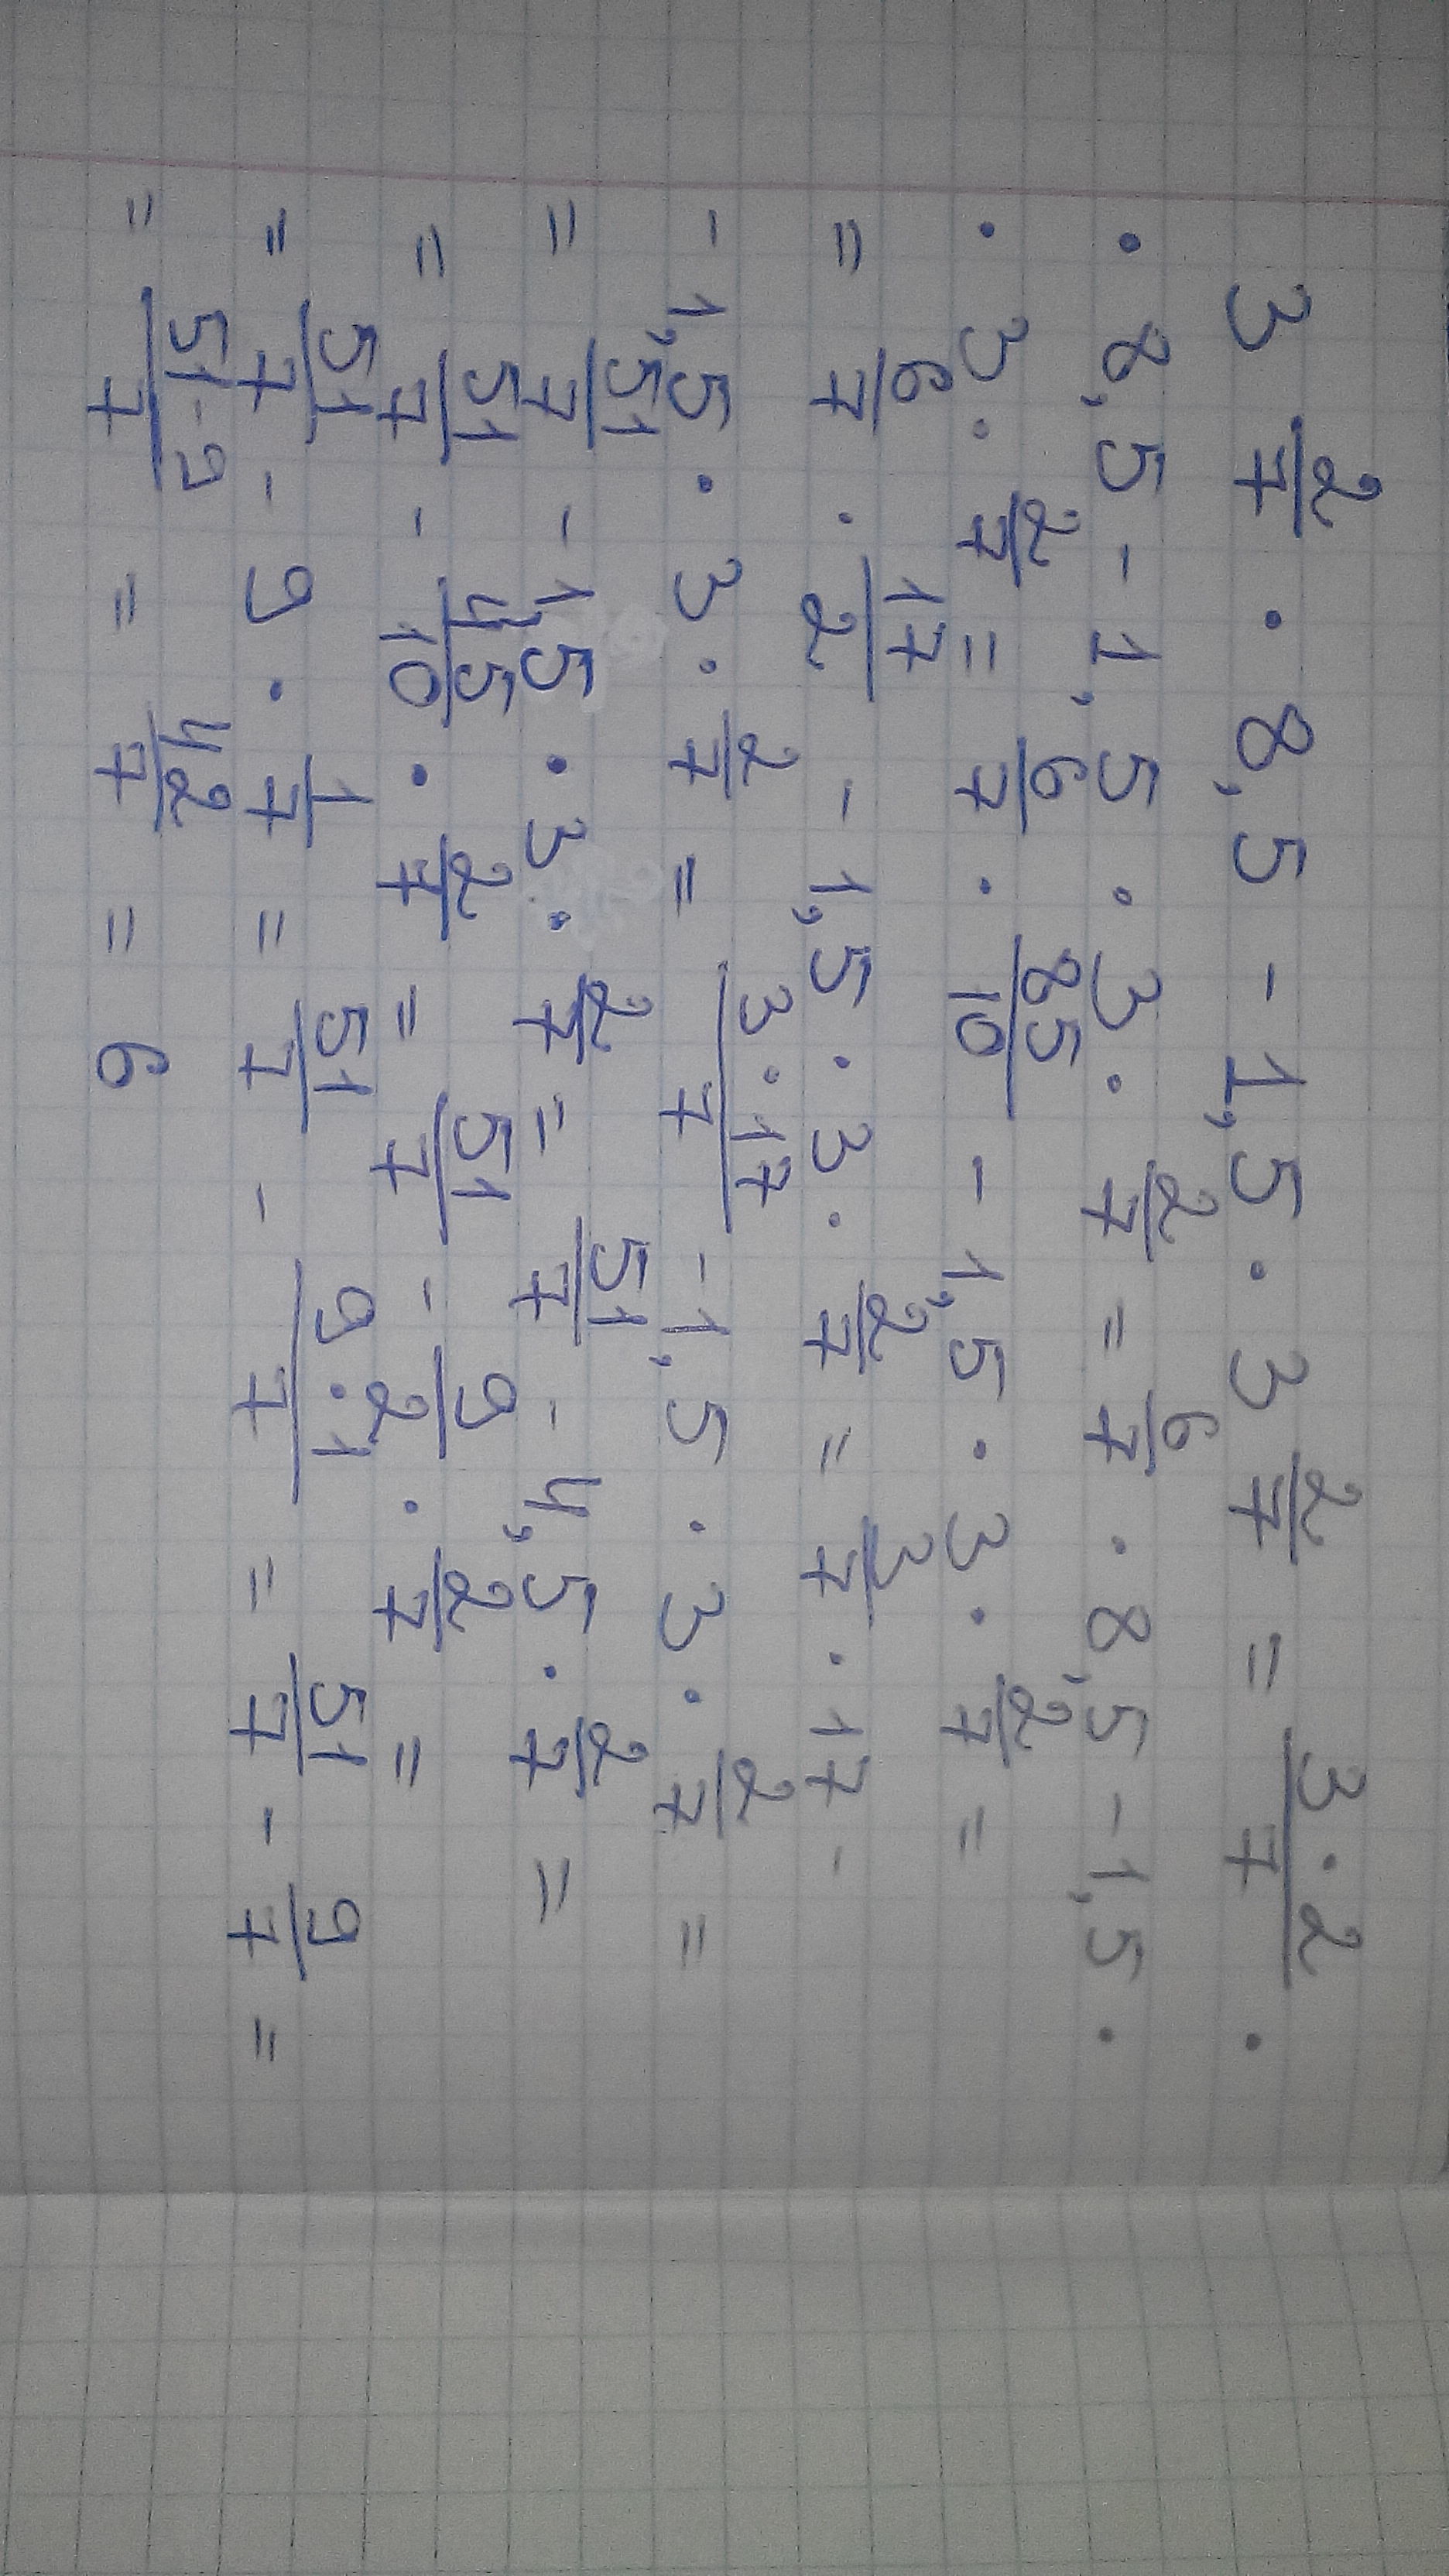 3 2/7 · 8,5 - 1,5 · 3 2/7 = 3·2/7 ·
· 8,5 - 1,5 · 3 · 2/7 = 6/7 · 8,5 - 1,5 ·
· 3 · 2/7 = 6/7 · 85/10 - 1,5 · 3 · 2/7 =
= 6/7 · 17/2 - 1,5 · 3 · 2/7 = 3/7 · 17 -
- 1,5 · 3 · 2/7 = 3·17/7 - 1,5 · 3 · 2/7 =
= 51/7 - 1,5 · 3 · 2/7 = 51/7 - 4,5 · 2/7 =
= 51/7 - 45/10 · 2/7 = 51/7 - 9/2 · 2/7 =
= 51/7 - 9 · 1/7 = 51/7 - 9·1/7 = 51/7 - 9/7 =
= 51-9/7 = 42/7 = 6